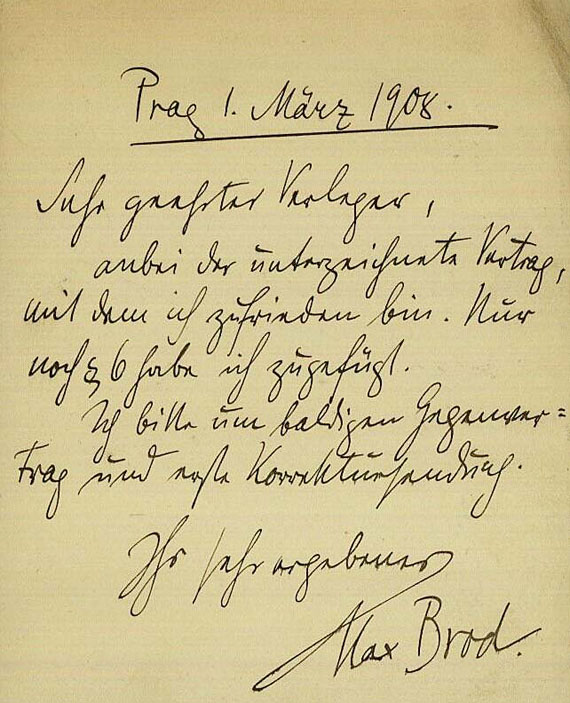 Prag 1. März 1908.
Sehr geehrter Verleger,
anbei der unterzeichnete Vertrag,
mit dem ich zufrieden bin. Nur
noch § 6 habe ich zugefügt.
Ich bitte um baldigen Gegenver=
trag und erste Korrektursendung.
Ihr sehr ergebener
Max Brod.